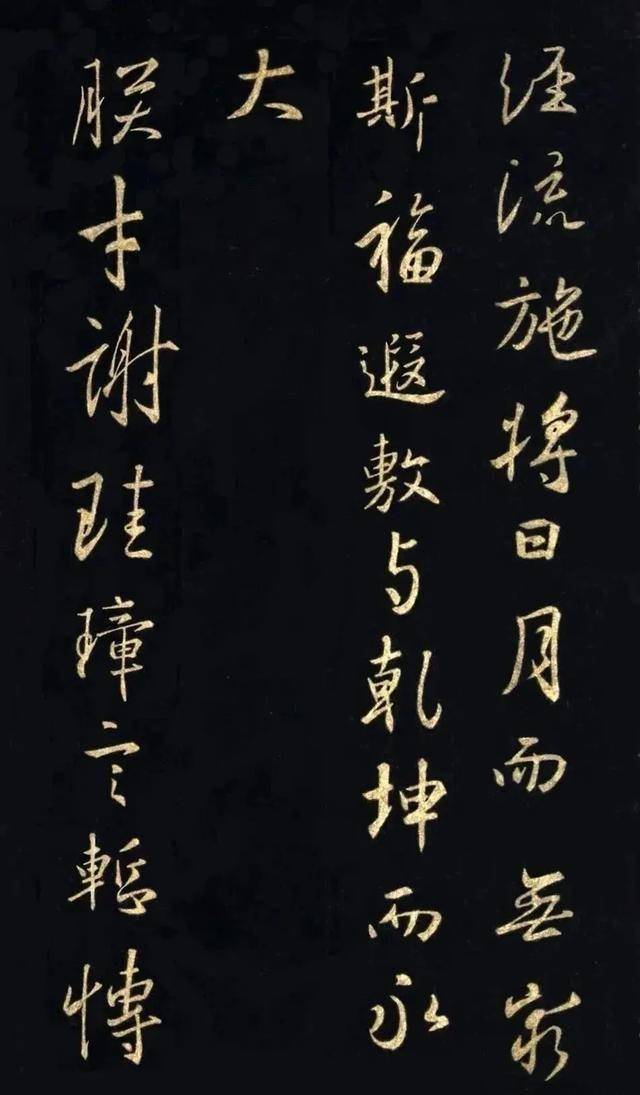 經流施將日月而無窮
斯福遐敷与乾坤而永
大
朕才謝珪璋言慚博